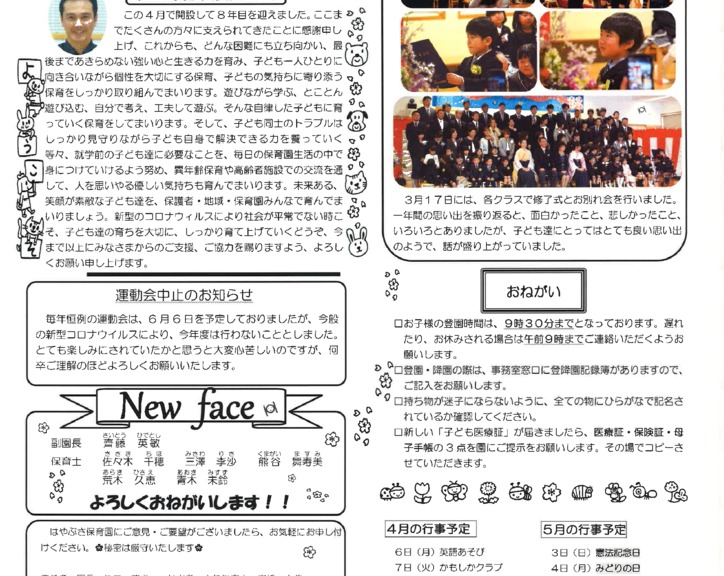 この４月で開設して８年目を迎えました。ここま
でたくさんの方々に支えられてきたことに感謝申し
上げ、これからも、どんな困難にも立ち向かい、最
後まであきらめない強い心と生きる力を育み、子ども一人ひとりに
向き合いながら個性を大切にする保育、子どもの気持ちに寄り添う
保育をしっかり取り組んでまいります。遊びながら学ぶ、とことん
遊び込む、自分で考え、工夫して遊ぶ。そんな自律した子どもに育
っていく保育をしてまいります。そして、子ども同士のトラブルは
しっかり見守りながら子ども自身で解決できる力を養っていく
等々、就学前の子ども達に必要なことを、毎日の保育園生活の中で
身につけていけるよう努め、異年齢保育や高齢者施設での交流を通
して、人を思いやる優しい気持ちも育んでまいります。未来ある、
笑顔が素敵な子ども達を、保護者・地域・保育園みんなで育んでま
いりましょう。新型のコロナウィルスにより社会が平常でない時こ
そ、子ども達の育ちを大切に、しっかり育て上げていくどうぞ、今
まで以上にみなさまからのご支援、ご協力を賜りますよう、よろし
くお願い申し上げます。
ようこそ
運動会中止のお知らせ
毎年恒例の運動会は、６月６日を予定しておりましたが、今般
の新型コロナウイルスにより、今年度は行わないこととしました。
とても楽しみにされていたかと思うと大変心苦しいのですが、何
卒ご理解のほどよろしくお願いいたします。
New face
さいとう ひでとし
副園長 齊藤 英敏
ささき ちほ みさわ りさ くまがい ますみ
保育士 佐々木 千穂 三澤 李沙 熊谷 舞寿美
あらき ひさえ あおき みすず
荒木 久恵 青木 未鈴
よろしくおねがいします！！
はやぶさ保育園にご意見・ご要望がございましたら、お気軽にお申し付
けください。✿秘密は厳守いたします✿
３月１７日には、各クラスで修了式とお別れ会を行いました。
一年間の思い出を振り返ると、面白かったこと、悲しかったこと、
いろいろとありましたが、子ども達にとってはとても良い思い出
のようで、話が盛り上がっていました。
おねがい
□お子様の登園時間は、９時３０分までとなっております。遅れ
たり、お休みされる場合は午前９時までご連絡いただくようお
願いします。
□登園・降園の際は、事務室窓口に登降園記録簿がありますので、
ご記入をお願いします。
□持ち物が迷子にならないように、全ての物にひらがなで記名さ
れているか確認してください。
□新しい「子ども医療証」が届きましたら、医療証・保険証・母
子手帳の３点を園にご提示をお願いします。その場でコピーさ
せていただきます。
４月の行事予定
６日（月）英語あそび
７日（火）かもしかクラブ
５月の行事予定
３日（日）憲法記念日
４日（月）みどりの日